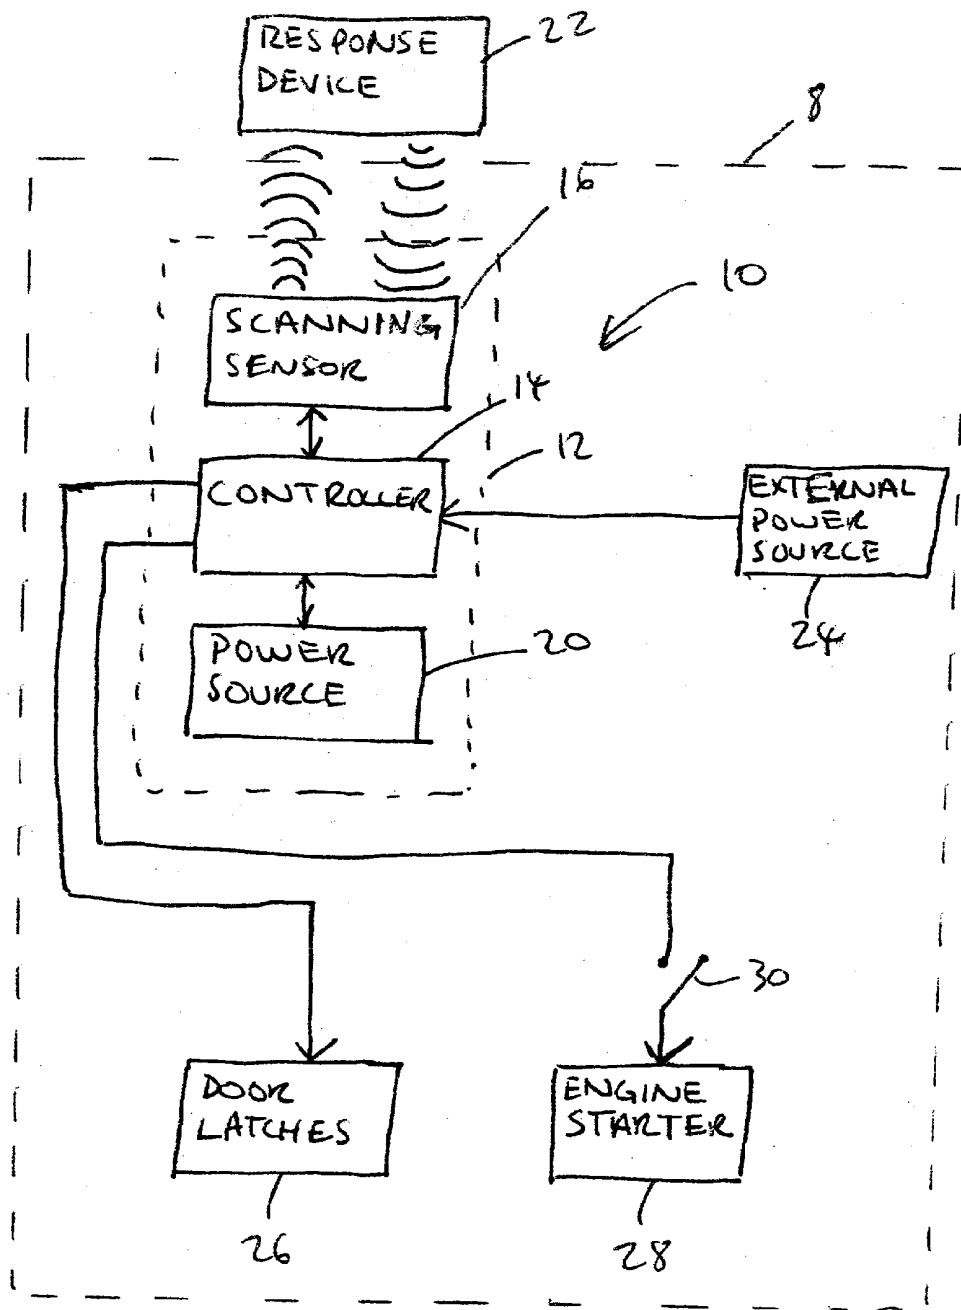 RESPONSE
DEVICE
22
8
16
10
SCANNING
SENSOR
14
12
CONTROLLER
EXTERNAL
POWER
SOURCE
24
POWER
SOURCE
20
30
DOOR
LATCHES
26
ENGINE
STARTER
28